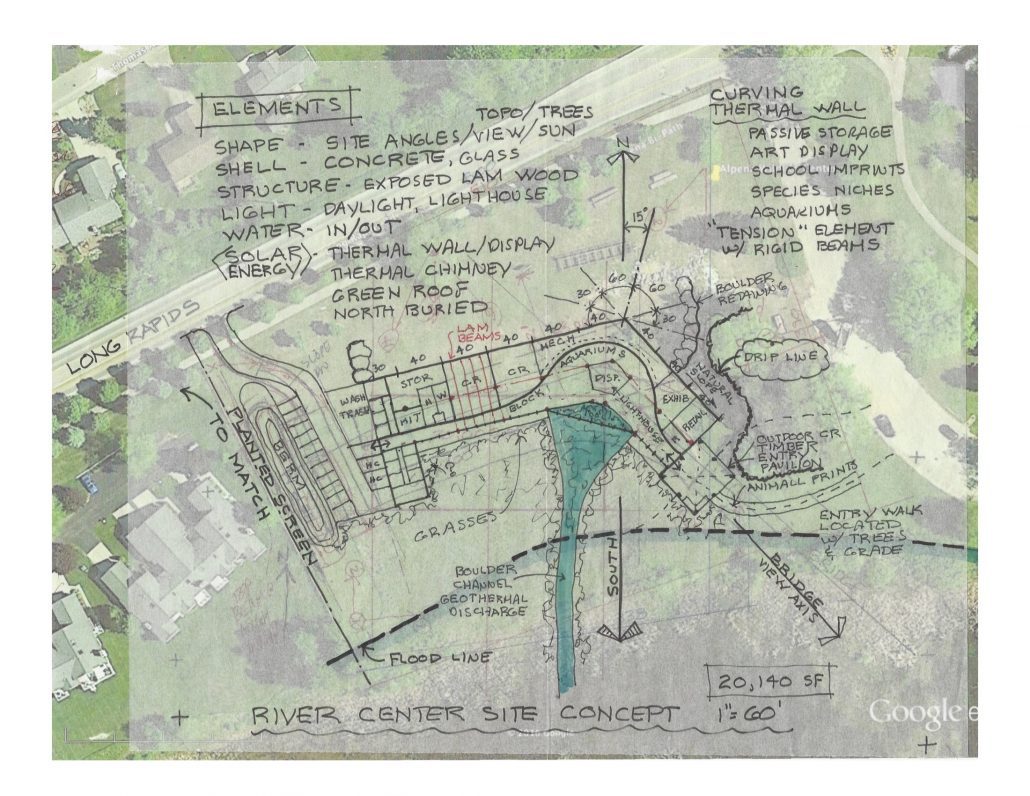 ELEMENTS
TOPO/TREES
SHAPE - SITE ANGLES/VIEW/SUN
SHELL - CONCRETE, GLASS
STRUCTURE - EXPOSED LAM WOOD
LIGHT - DAYLIGHT, LIGHTHOUSE
WATER - IN/OUT
SOLAR ENERGY - THERMAL WALL/DISPLAY
THERMAL CHIMNEY
GREEN ROOF
NORTH BURIED
CURVING
THERMAL WALL
PASSIVE STORAGE
ART DISPLAY
SCHOOL IMPRINTS
SPECIES NICHES
AQUARIUMS
"TENSION" ELEMENT
W/ RIGID BEAMS
N
15°
60
60
30
30
BOULDER
RETAINING
DRIP LINE
NATURAL
SLOPE
LONG RAPIDS
LAM
BEAMS
40
40
40
40
40
30
MECH
STOR
C.R.
C.R.
AQUARIUMS
DISP.
EXHIB
RETAIL
WASH
TRASH
KIT
H
W
BLOCK
LIGHTHOUSE
HC
HC
BERM
TO MATCH
PLANTED SCREEN
GRASSES
OUTDOOR CR
TIMBER
ENTRY
PAVILION
ANIMALL PRINTS
ENTRY WALK
LOCATED
W/ TREES
& GRADE
BOULDER
CHANNEL
GEOTHERMAL
DISCHARGE
SOUTH
BRIDGE
VIEW AXIS
FLOOD LINE
20,140 SF
RIVER CENTER SITE CONCEPT 1"=60'
Google e